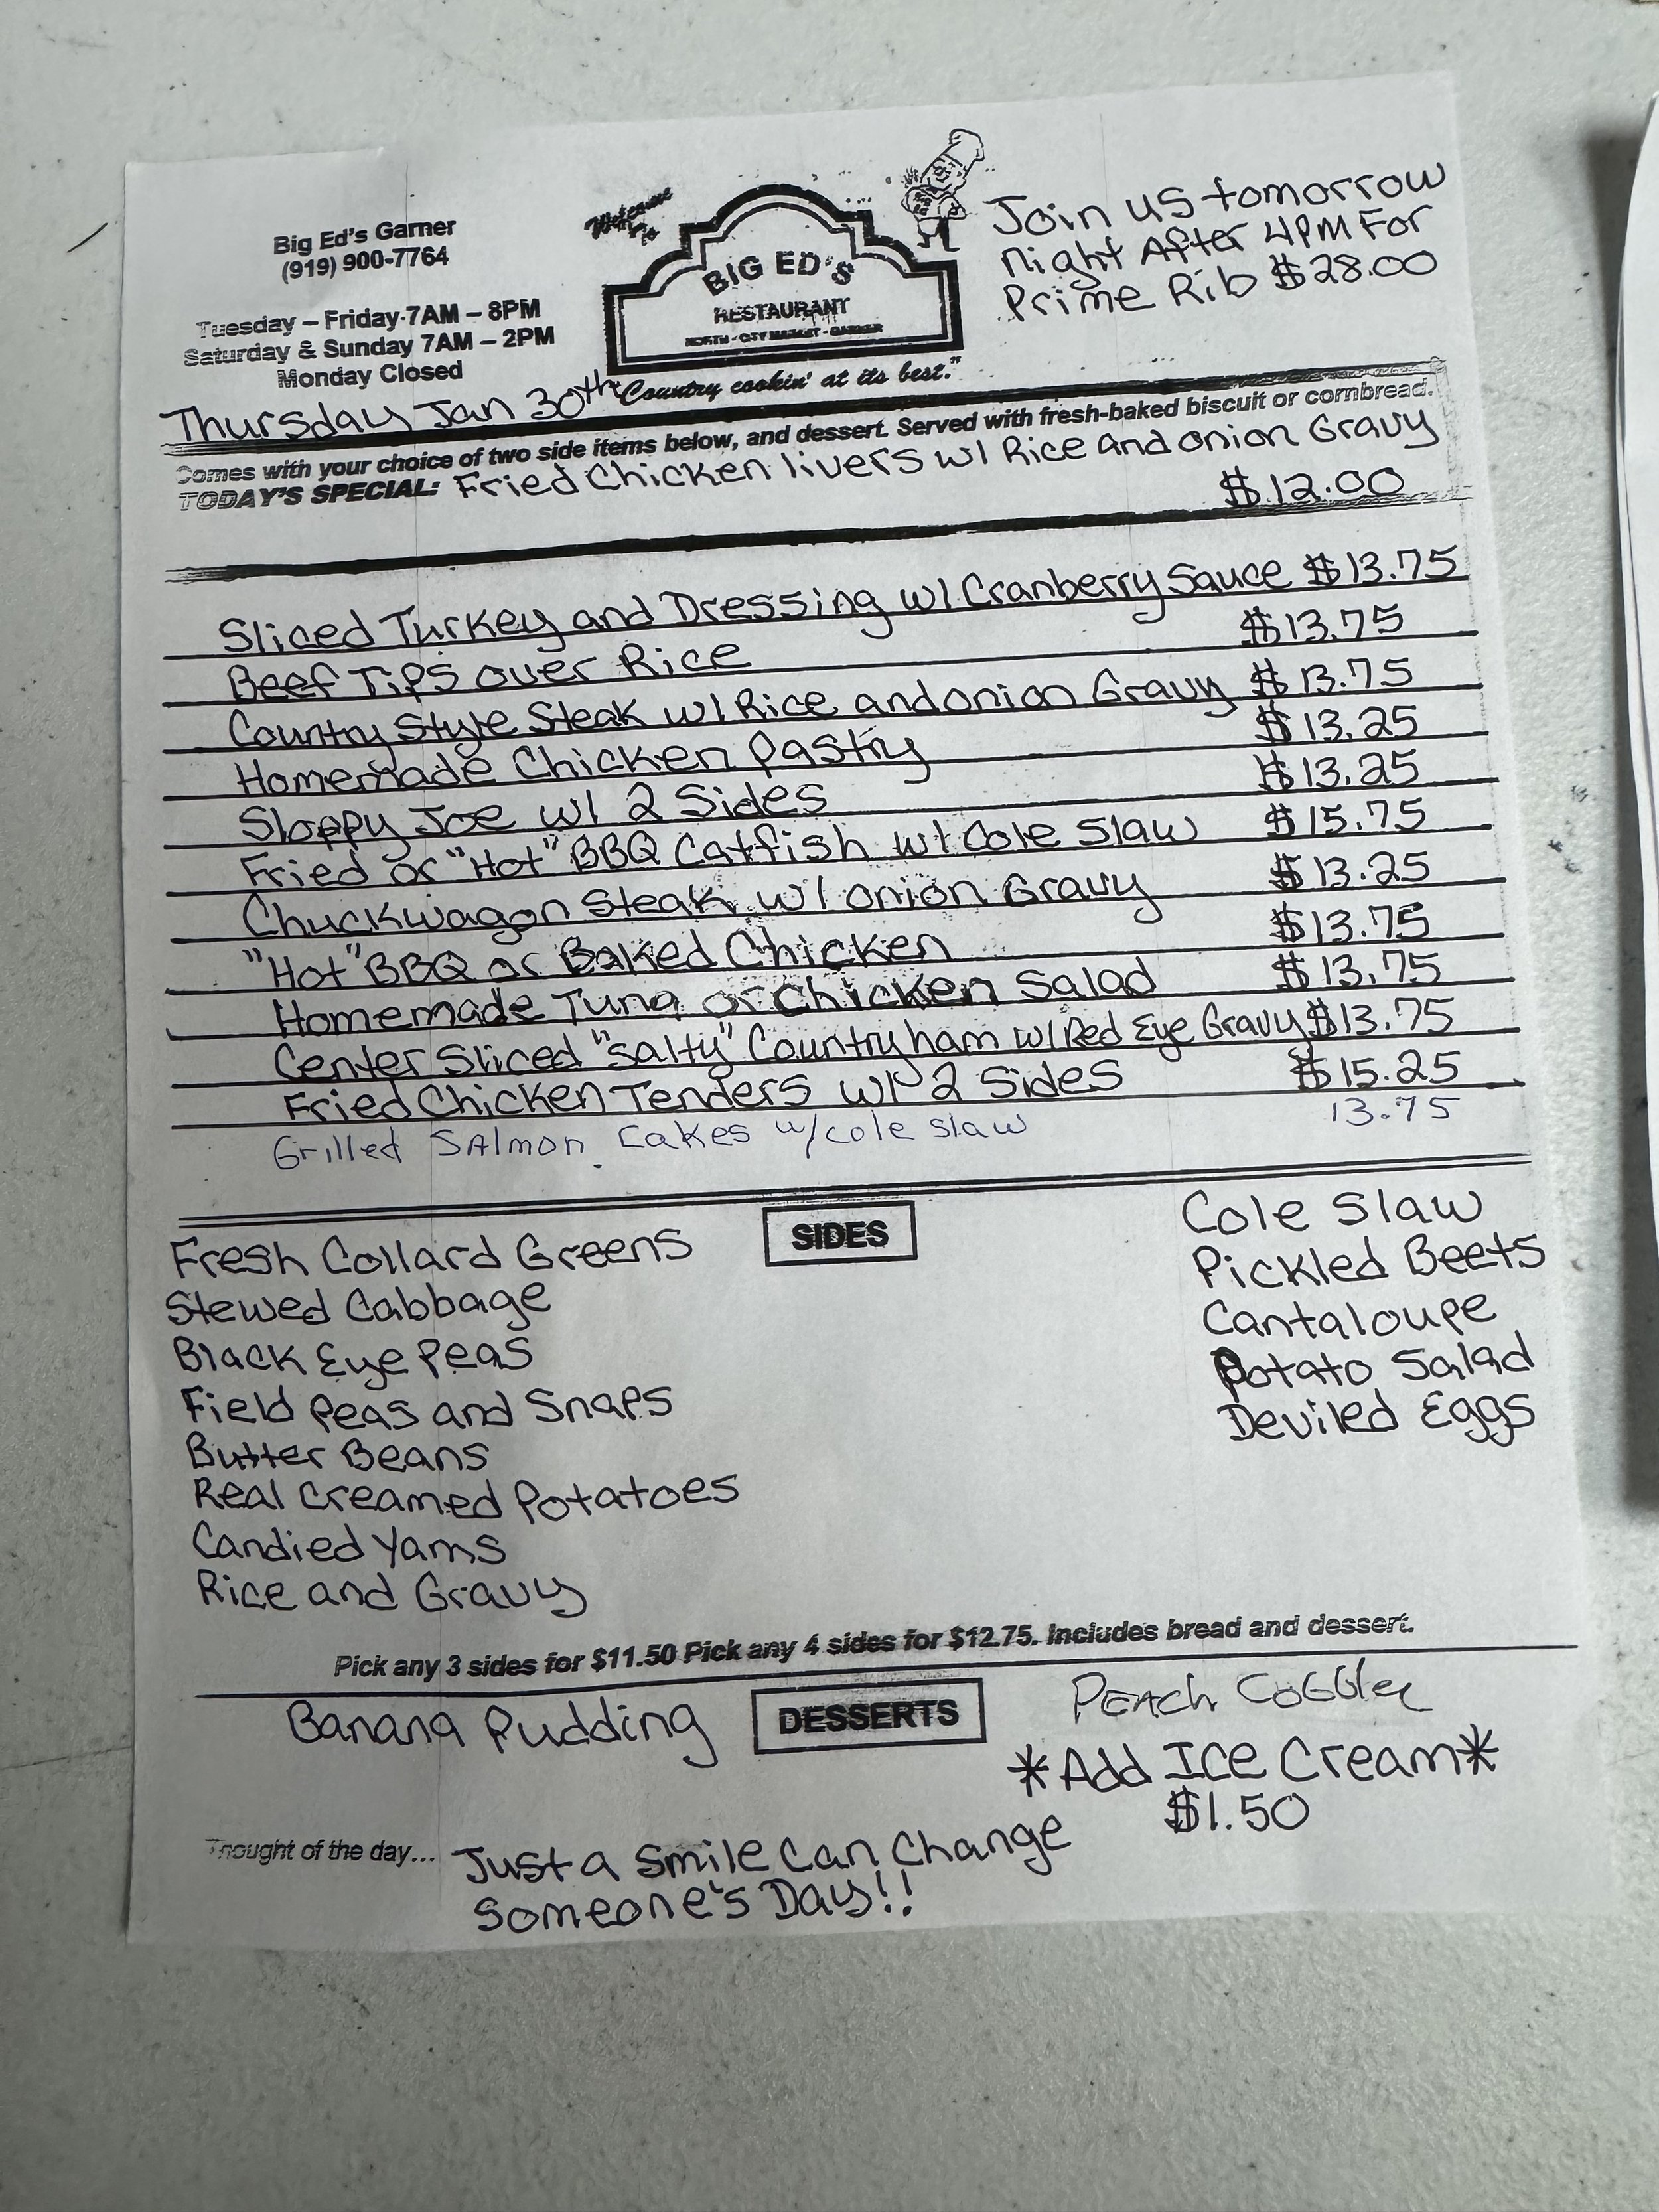 Big Ed's Garner
(919) 900-7764
Tuesday – Friday 7AM – 8PM
Saturday & Sunday 7AM – 2PM
Monday Closed
Welcome
To
BIG ED'S
RESTAURANT
NORTH - CITY MARKET - GARNER
"Country cookin' at its best."
Join us tomorrow
night After 4PM For
Prime Rib $28.00
Thursday Jan 30th
Comes with your choice of two side items below, and dessert. Served with fresh-baked biscuit or cornbread.
TODAY'S SPECIAL: Fried Chicken livers w/ Rice and onion Gravy
$12.00
Sliced Turkey and Dressing w/ Cranberry Sauce $13.75
Beef Tips over Rice $13.75
Country Style Steak w/ Rice and onion Gravy $13.75
Homemade Chicken Pastry $13.25
Sloppy Joe w/ 2 Sides $13.25
Fried or "Hot" BBQ Catfish w/ Cole Slaw $15.75
Chuckwagon Steak w/ onion Gravy $13.25
"Hot" BBQ or Baked Chicken $13.75
Homemade Tuna or Chicken Salad $13.75
Center Sliced "Salty" Country ham w/ Red Eye Gravy $13.75
Fried Chicken Tenders w/ 2 Sides $15.25
Grilled SAlmon Cakes w/ cole slaw 13.75
SIDES
Fresh Collard Greens
Stewed Cabbage
Black Eye Peas
Field Peas and Snaps
Butter Beans
Real Creamed Potatoes
Candied Yams
Rice and Gravy
Cole Slaw
Pickled Beets
Cantaloupe
Potato Salad
Deviled Eggs
Pick any 3 sides for $11.50 Pick any 4 sides for $12.75. Includes bread and dessert.
DESSERTS
Banana Pudding
PEACh CobbLer
*Add Ice Cream*
$1.50
Thought of the day... Just a Smile Can Change
Someone's Day!!